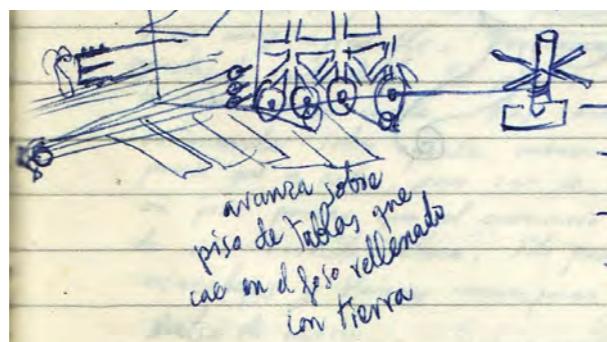 avanza sobre
piso de tablas que
cae en el foso rellenado
con tierra